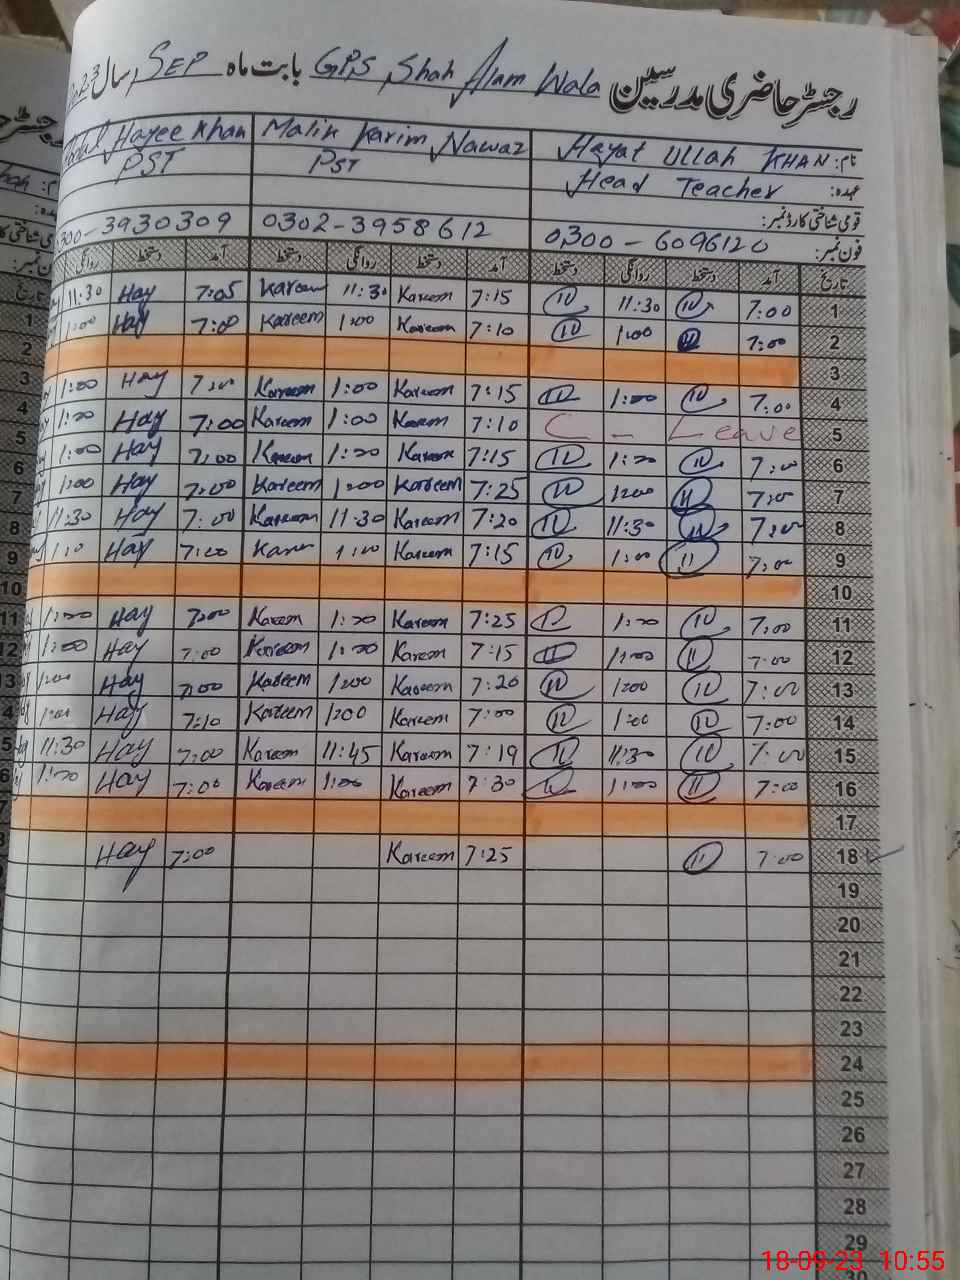 رجسٹر حاضری مدرسین GPS Shah Alam Wala بابت ماہ SEP سال 2023
نام: Hayat Ullah KHAN Malik Karim Nawaz Hayee Khan
عہدہ: Head Teacher PST PST
قومی شناختی کارڈ نمبر:
فون نمبر: 0300-6096120 0302-3958612 300-3930309
تاریخ آمد دستخط روانگی دستخط آمد دستخط روانگی دستخط آمد دستخط روانگی
1 7:00 11:30 7:15 Kareem 11:30 Kareem 7:05 Hay 11:30
2 7:00 1:00 7:10 Kareem 1:00 Kareem 7:00 Hay 1:00
3
4 7:00 1:00 7:15 Kareem 1:00 Kareem 7:00 Hay 1:00
5 C - Leave 7:10 Kareem 1:00 Kareem 7:00 Hay 1:00
6 7:00 1:00 7:15 Kareem 1:00 Kareem 7:00 Hay 1:00
7 7:00 1:00 7:25 Kareem 1:00 Kareem 7:00 Hay 1:00
8 7:00 11:30 7:20 Kareem 11:30 Kareem 7:00 Hay 11:30
9 7:00 1:00 7:15 Kareem 1:00 7:00 Hay 1:10
10
11 7:00 1:00 7:25 Kareem 1:00 Kareem 7:00 Hay 1:00
12 7:00 1:00 7:15 Kareem 1:00 Kareem 7:00 Hay 1:00
13 7:00 1:00 7:20 Kareem 1:00 Kareem 7:00 Hay 1:00
14 7:00 1:00 7:00 Kareem 1:00 Kareem 7:10 Hay 1:00
15 7:00 11:30 7:19 Kareem 11:45 Kareem 7:00 Hay 11:30
16 7:00 1:00 7:30 Kareem 1:00 Kareem 7:00 Hay 1:00
17
18 7:00 7:25 Kareem 7:00 Hay
19
20
21
22
23
24
25
26
27
28
29
18-09-23 10:55